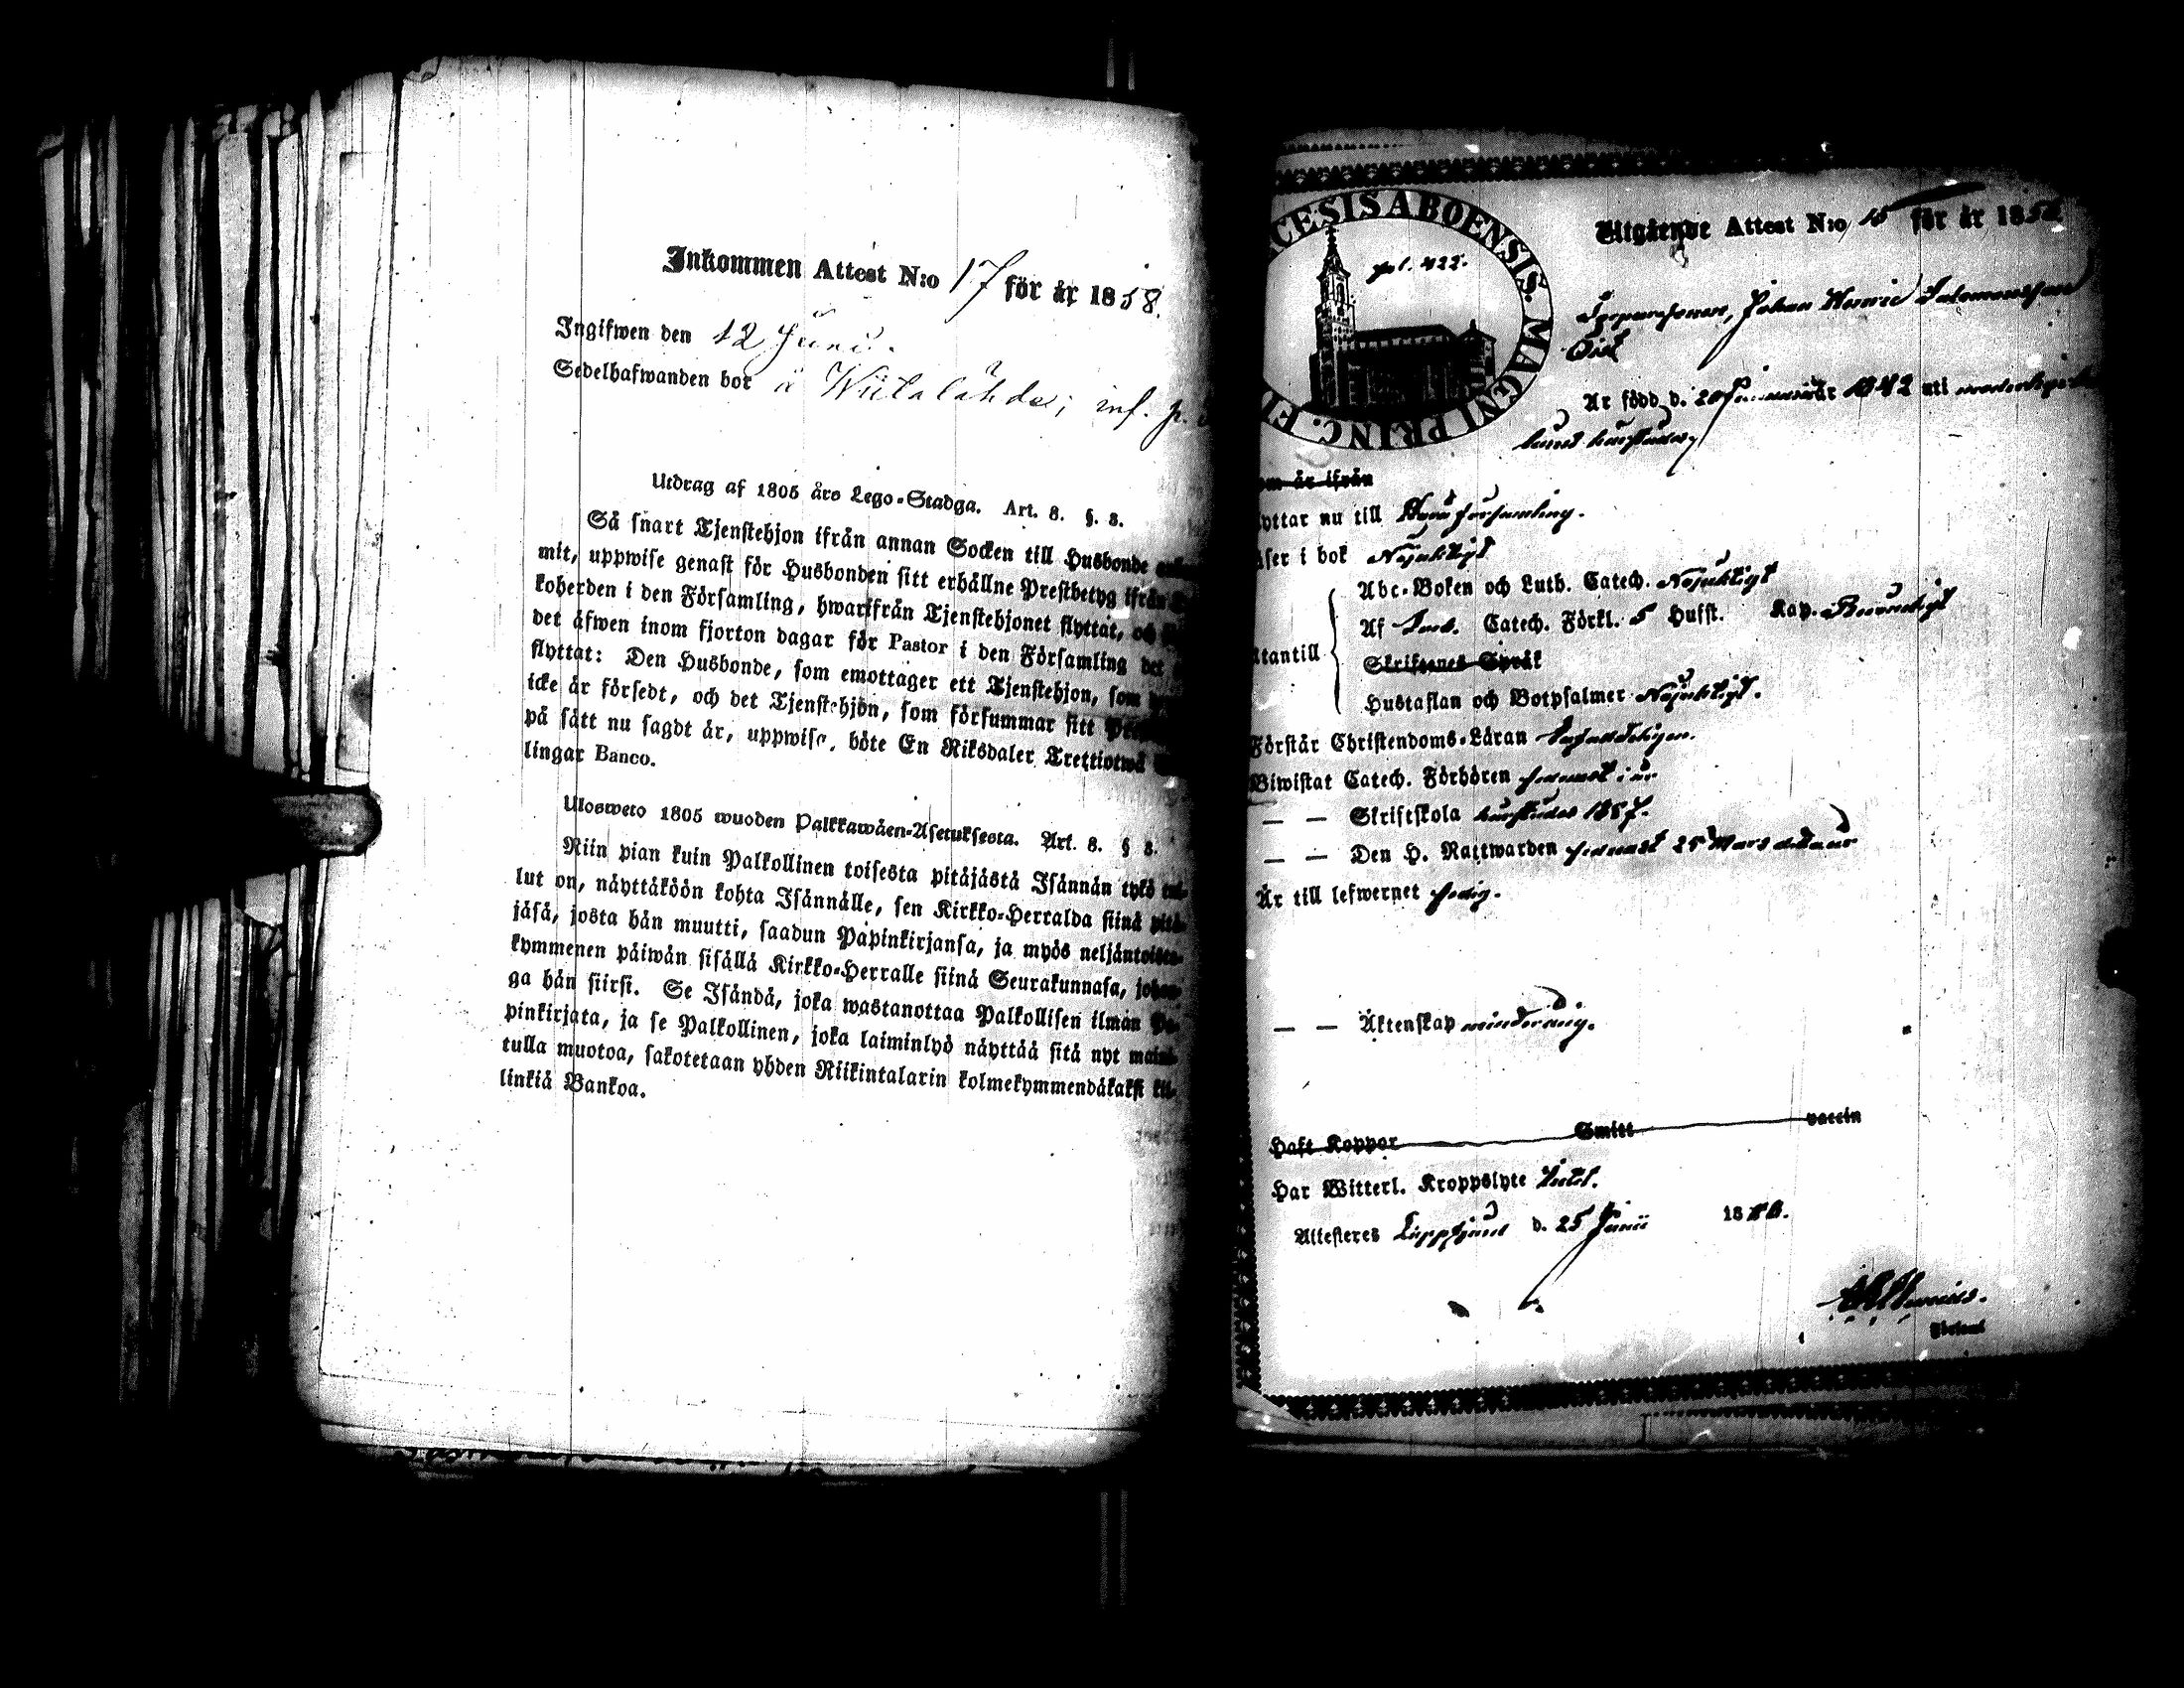 Inkommen Attest N:o 17 för år 1858.
Ingifwen den 12 Juni.
Sedelhafwanden bor å Wiitalähde; inf. p.
Utdrag af 1805 års Lego-Stadga. Art. 8. §. 3.
Så snart Tjenstehjon ifrån annan Socken till Husbonde
mit, uppwise genast för Husbonden sitt erhållne Prestbetyg ifrån
koherden i den Församling, hwarifrån Tjenstehjonet flyttat, och
det äfwen inom fjorton dagar för Pastor i den Församling det
flyttat: Den Husbonde, som emottager ett Tjenstehjon, som
icke är försedt, och det Tjenstehjon, som försummar sitt
på sätt nu sagdt är, uppwisa, böte En Riksdaler Trettiotwå
lingar Banco.
Ulosweto 1805 wuoden Palkkawäen-Asetuksesta. Art. 8. § 3.
Niin pian kuin Palkollinen toisesta pitäjästä Isännän tykö tul-
lut on, näyttäköön kohta Isännälle, sen Kirkko-Herralda siinä pitä-
jäsä, josta hän muutti, saadun Papinkirjansa, ja myös neljäntoista-
kymmenen päiwän sisällä Kirkko-Herralle siinä Seurakunnasa, johon-
ga hän siirsi. Se Isändä, joka wastanottaa Palkollisen ilman Pa-
pinkirjata, ja se Palkollinen, joka laiminlyö näyttää sitä nyt maini-
tulla muotoa, sakotetaan yhden Riikintalarin kolmekymmendäkaksi kil-
linkiä Bankoa.
CESIS ABOENSIS. MAGNI PRINC. FI
fol. 422.
Utgående Attest N:o 15 för år 1858
Johan Henric Salomonsson
Qist
Är född d. 20 Januari år 1842 uti
härstädes,
om är ifrån
yttar nu till församling.
äser i bok Nöjaktigt
Abc-Boken och Luth. Catech. Nöjaktigt
Af Catech. Förkl. 5 Hufst. Kap.
tantill
Skriftenes Språk
Hustaflan och Botpsalmer Nöjaktigt.
Förstår Christendoms-Läran
Biwistat Catech. Förhören senast i år.
— — Skriftskola härstädes 1857.
— — Den H. Nattwarden senast 25 Mars detta år
Är till lefwernet sedig.
— — Äktenskap minderårig.
Haft Koppor Smitt vaccin
Har Witterl. Kroppslyte Intet.
Attesteres Lappfjärd d. 25 Junii 18